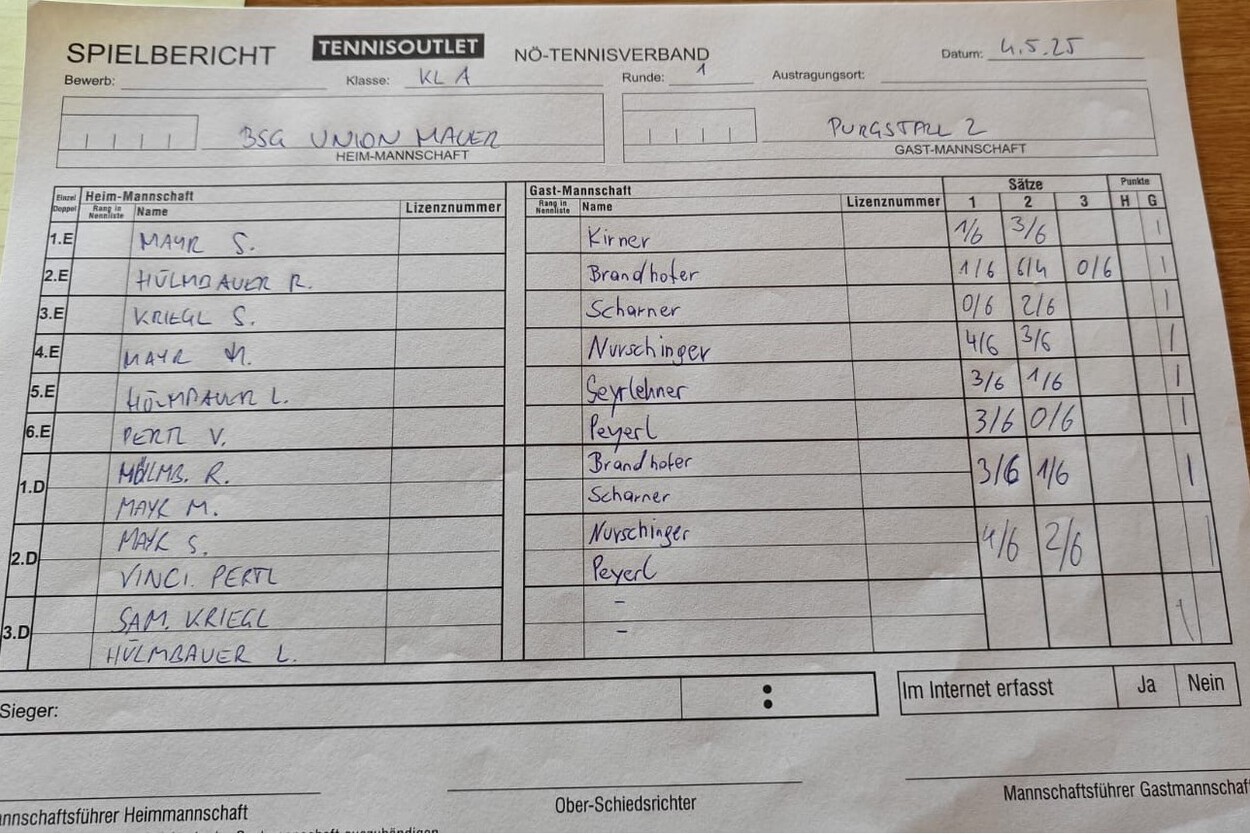 SPIELBERICHT TENNISOUTLET NÖ-TENNISVERBAND Datum: 4.5.25
Bewerb: Klasse: KL A Runde: 1 Austragungsort:
BSG UNION MAUER PURGSTALL 2
HEIM-MANNSCHAFT GAST-MANNSCHAFT
Einzel Doppel Heim-Mannschaft Gast-Mannschaft Sätze Punkte
Rang in Nennliste Name Lizenznummer Rang in Nennliste Name Lizenznummer 1 2 3 H G
1.E MAYR S. Kirner 1/6 3/6 |
2.E HÜLMBAUER R. Brandhofer 1/6 6/4 0/6 |
3.E KRIEGL S. Scharner 0/6 2/6 |
4.E MAYR M. Nurschinger 4/6 3/6 |
5.E HÜLMBAUER L. Seyrlehner 3/6 1/6 |
6.E PERTL V. Peyerl 3/6 0/6 |
1.D HÜLMB. R. Brandhofer 3/6 1/6 |
MAYR M. Scharner
2.D MAYR S. Nurschinger 4/6 2/6 |
VINCI. PERTL Peyerl
3.D SAM. KRIEGL -
HÜLMBAUER L. -
Sieger: : Im Internet erfasst Ja Nein
nnschaftsführer Heimmannschaft Ober-Schiedsrichter Mannschaftsführer Gastmannschaf